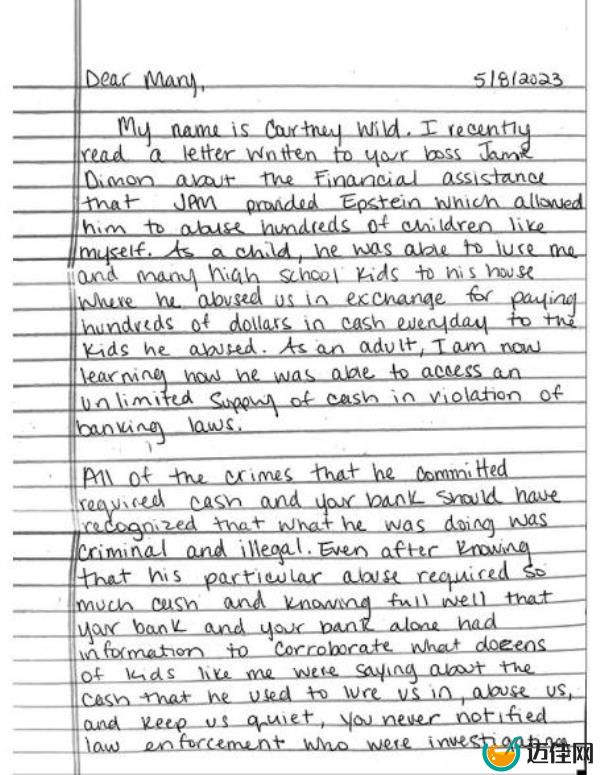 Dear Mary, 5/8/2023
My name is Cartney Wild. I recently
read a letter written to your boss Jamie
Dimon about the Financial assistance
that JPM provided Epstein which allowed
him to abuse hundreds of children like
myself. As a child, he was able to lure me
and many high school kids to his house
where he abused us in exchange for paying
hundreds of dollars in cash everyday to the
kids he abused. As an adult, I am now
learning how he was able to access an
unlimited supply of cash in violation of
banking laws.
All of the crimes that he committed
required cash and your bank should have
recognized that what he was doing was
criminal and illegal. Even after knowing
that his particular abuse required so
much cash and knowing full well that
your bank and your bank alone had
information to corroborate what dozens
of kids like me were saying about the
cash that he used to lure us in, abuse us,
and keep us quiet, you never notified
law enforcement who were investigating
迈佳网